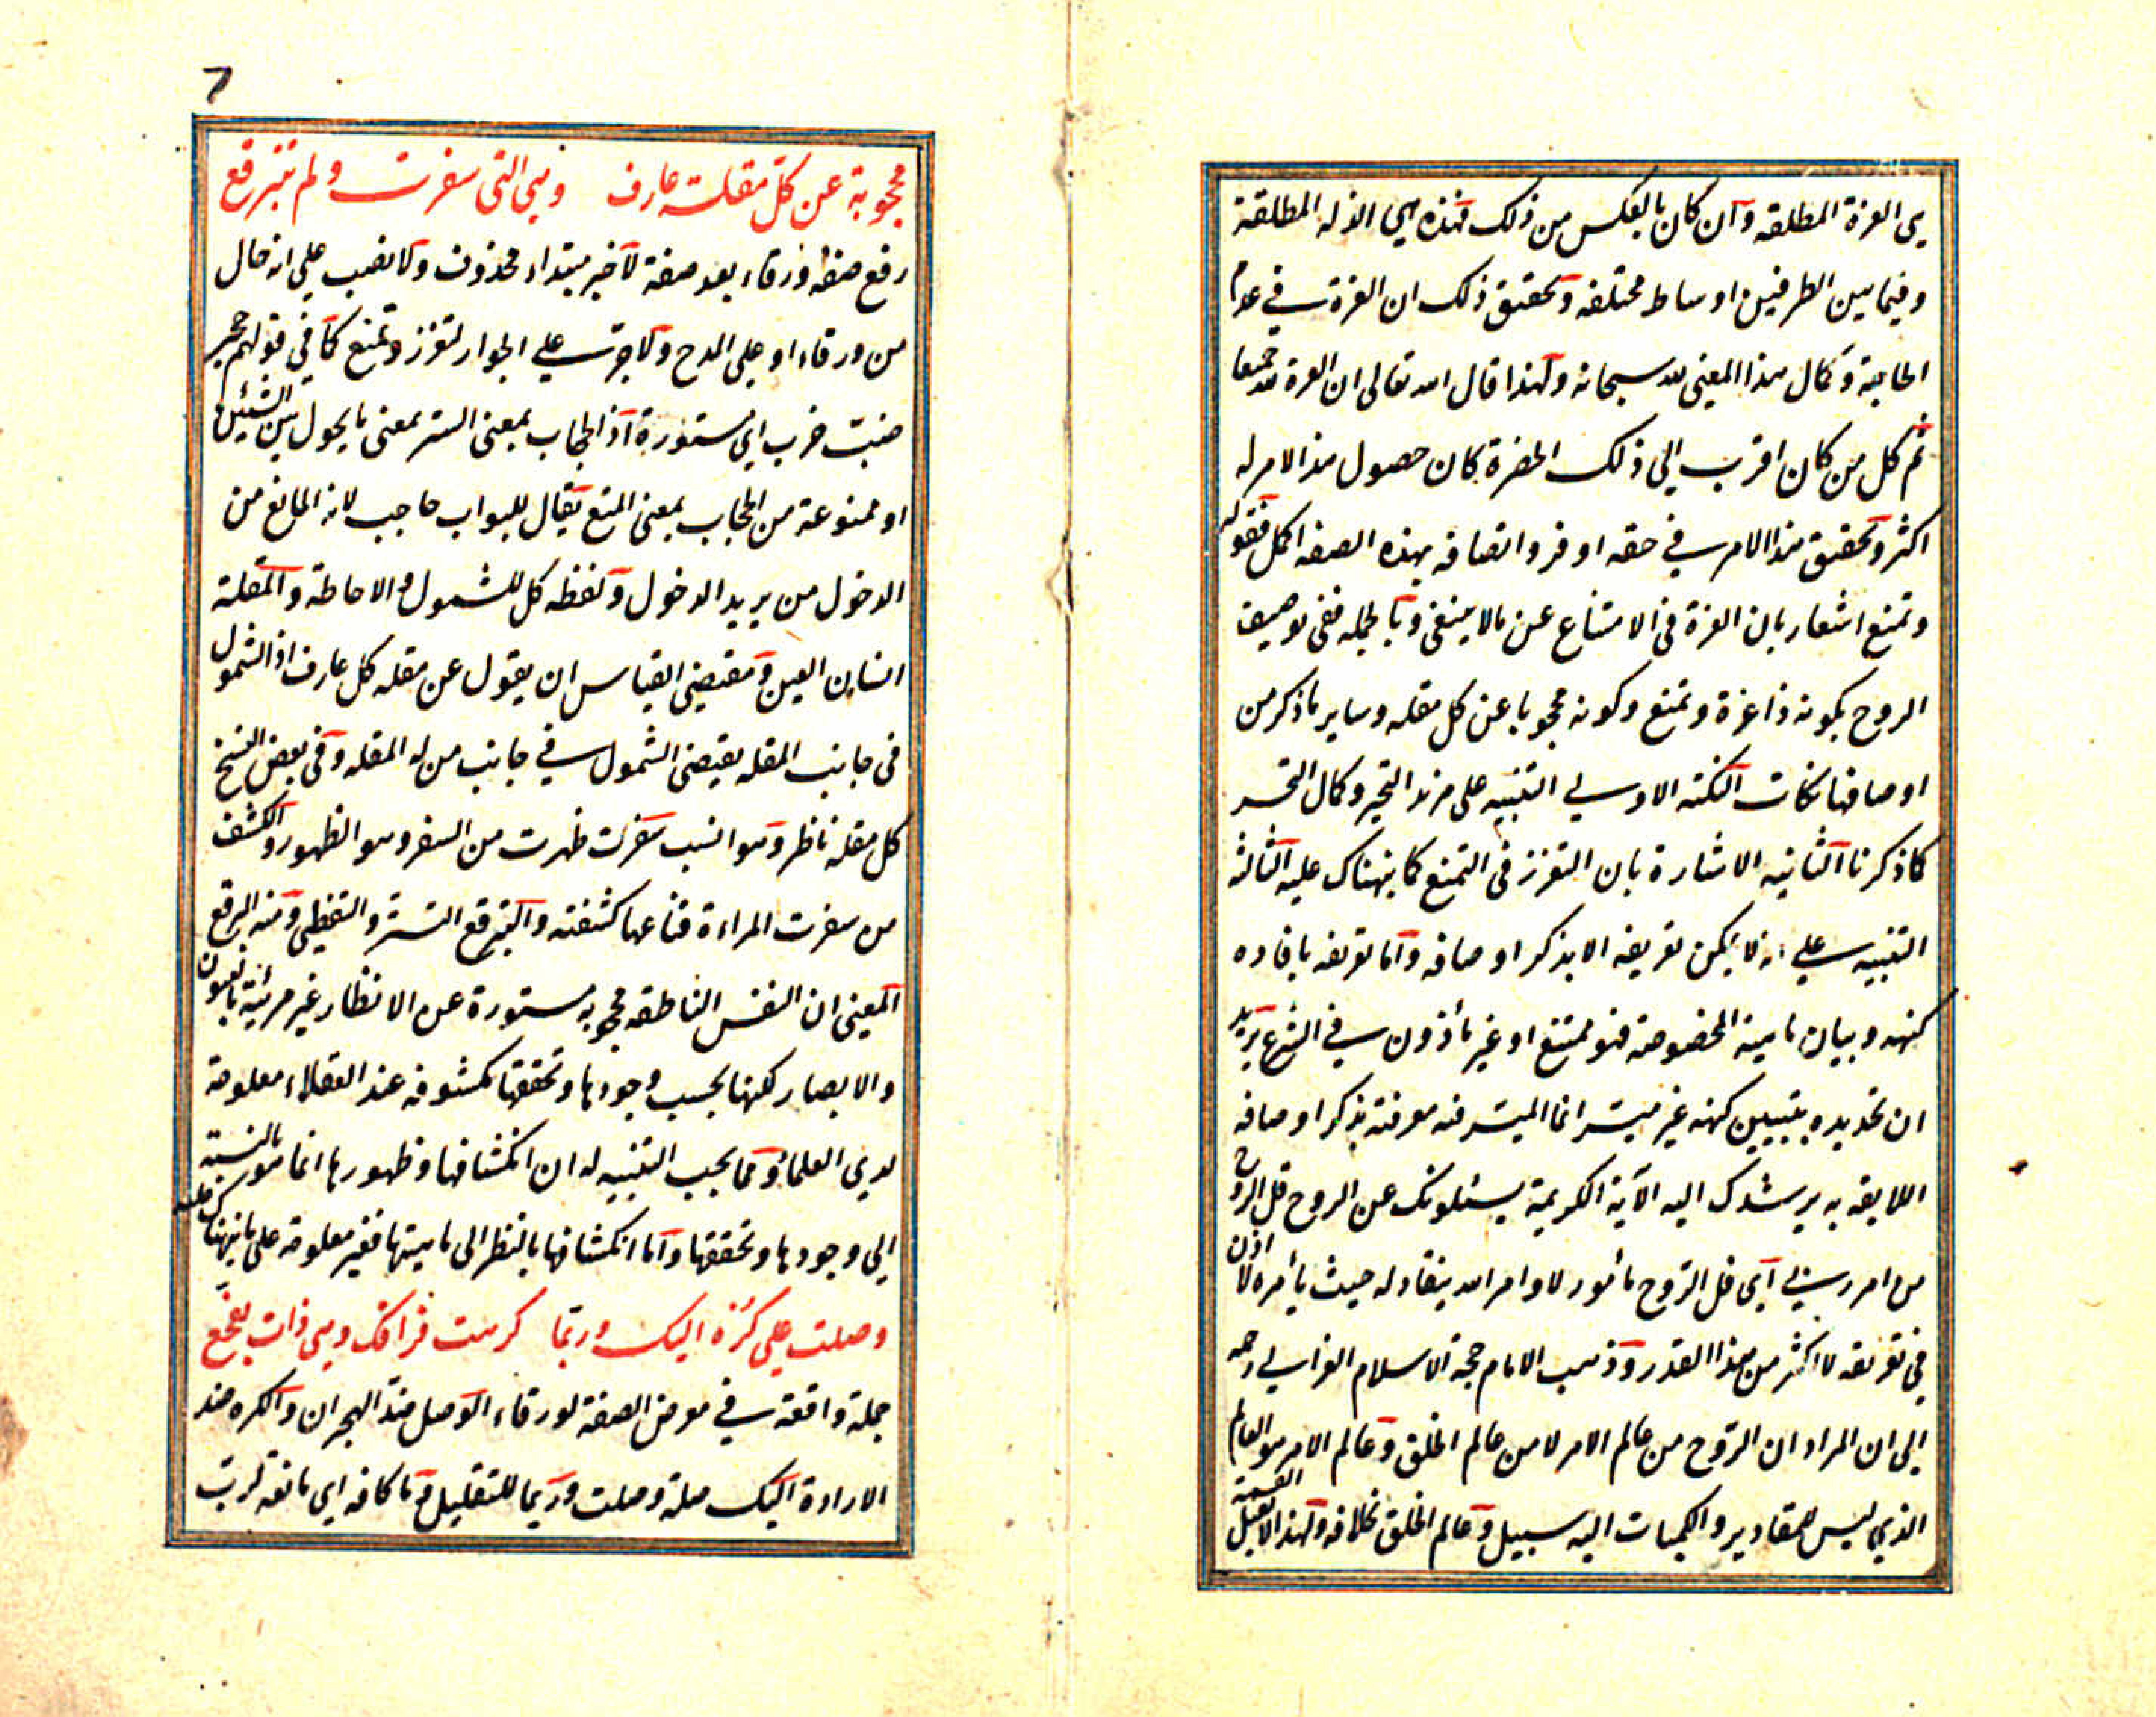 هى العزة المطلقه وان كان بالعكس من ذلك فهذه هي الذله المطلقة
وفيما بين الطرفين اوساط مختلفه وتحقيق ذلك ان العزة في عدم
الحاجة وكمال هذا المعنى لله سبحانه ولهذا قال الله تعالى ان العزة لله جميعا
ثم كل من كان اقرب الى ذلك الحضرة كان حصول هذا الامر له
اكثر وتحقيق هذا الامر في حقه اوفر واتصافه بهذه الصفه اكمل فقوله
وتمنع اشعار بان العزة فى الامتناع عن مالا ينبغى وبالجمله ففى توصيف
الروح بكونه ذا عزة وتمنع وكونه محجوبا عن كل مقله وساير ما ذكر من
اوصافها نكات النكته الاولى التنبيه على مزيد التحير وكمال التحسر
كما ذكرنا الثانيه الاشارة بان التعزز فى التمنع كما نبهناك عليه الثالثه
التنبيه على انه لا يمكن تعريفه الا بذكر اوصافه واما تعريفه بافاده
كنهه وبيان ماهيته المخصوصة فهو ممتنع او غير مأذون في الشرع يريد
ان تحديده بتبيين كنهه غير ميسر انما الميسر فيه معرفته بذكر اوصافه
اللايقه به يرشدك اليه الآية الكريمة يسئلونك عن الروح قل الروح
من امر ربي اى قل الروح مأمور لاوامر الله ينقاد له حيث يأمره لا اذن
في تعريفه لا اكثر من هذا القدر وذهب الامام حجة الاسلام الغزالي رحمه
الى ان المراد ان الروح من عالم الامر لا من عالم الخلق وعالم الامر هو العالم
الذي ليس للمقادير والكميات اليه سبيل وعالم الخلق بخلافه ولهذا لا يقبل القسمة
7
محجوبة عن كل مقلة عارف وهى التى سفرت ولم تتبرقع
رفع صفة ورقاء بعد صفة لا خبر مبتداء محذوف ولا نصب على انه حال
من ورقاء او على المدح ولا جرت على الجوار لتعزز وتمنع كما فى قولهم حجر
ضبت خرب اى مستورة اذ الحجاب بمعنى الستر بمعنى ما يحول بين الشيئين
او ممنوعة من الحجاب بمعنى المنع يقال للبواب حاجب لانه المانع من
الدخول من يريد الدخول ولفظه كل للشمول والاحاطة والمقلة
انسان العين ومقتضى القياس ان يقول عن مقله كل عارف اذ الشمول
فى جانب المقله يقتضى الشمول في جانب من له المقله وفى بعض النسخ
كل مقلة ناظر وهو انسب سفرت ظهرت من السفر وهو الظهور والكشف
من سفرت المراءة قناعها كشفته والتبرقع التستر والتغطى ومنه البرقع
المعنى ان النفس الناطقه محجوبه مستورة عن الانظار غير مرئية بالعيون
والابصار لكنها بحسب وجودها وتحققها مكشوفه عند العقلاء معلومة
لدى العلماء ومما يجب التنبيه له ان انكشافها وظهورها انما هو بالنسبة
الى وجودها وتحققها واما انكشافها بالنظر الى ماهيتها فغير معلومة على ما نبهناك عليه
وصلت على كره اليك وربما كرهت فراقك وهى ذات تفجع
جملة واقعة في موضع الصفة لورقاء الوصل ضد الهجران والكره ضد
الارادة اليك صلة وصلت وربما للتقليل وما كافه اى مانعة لرب